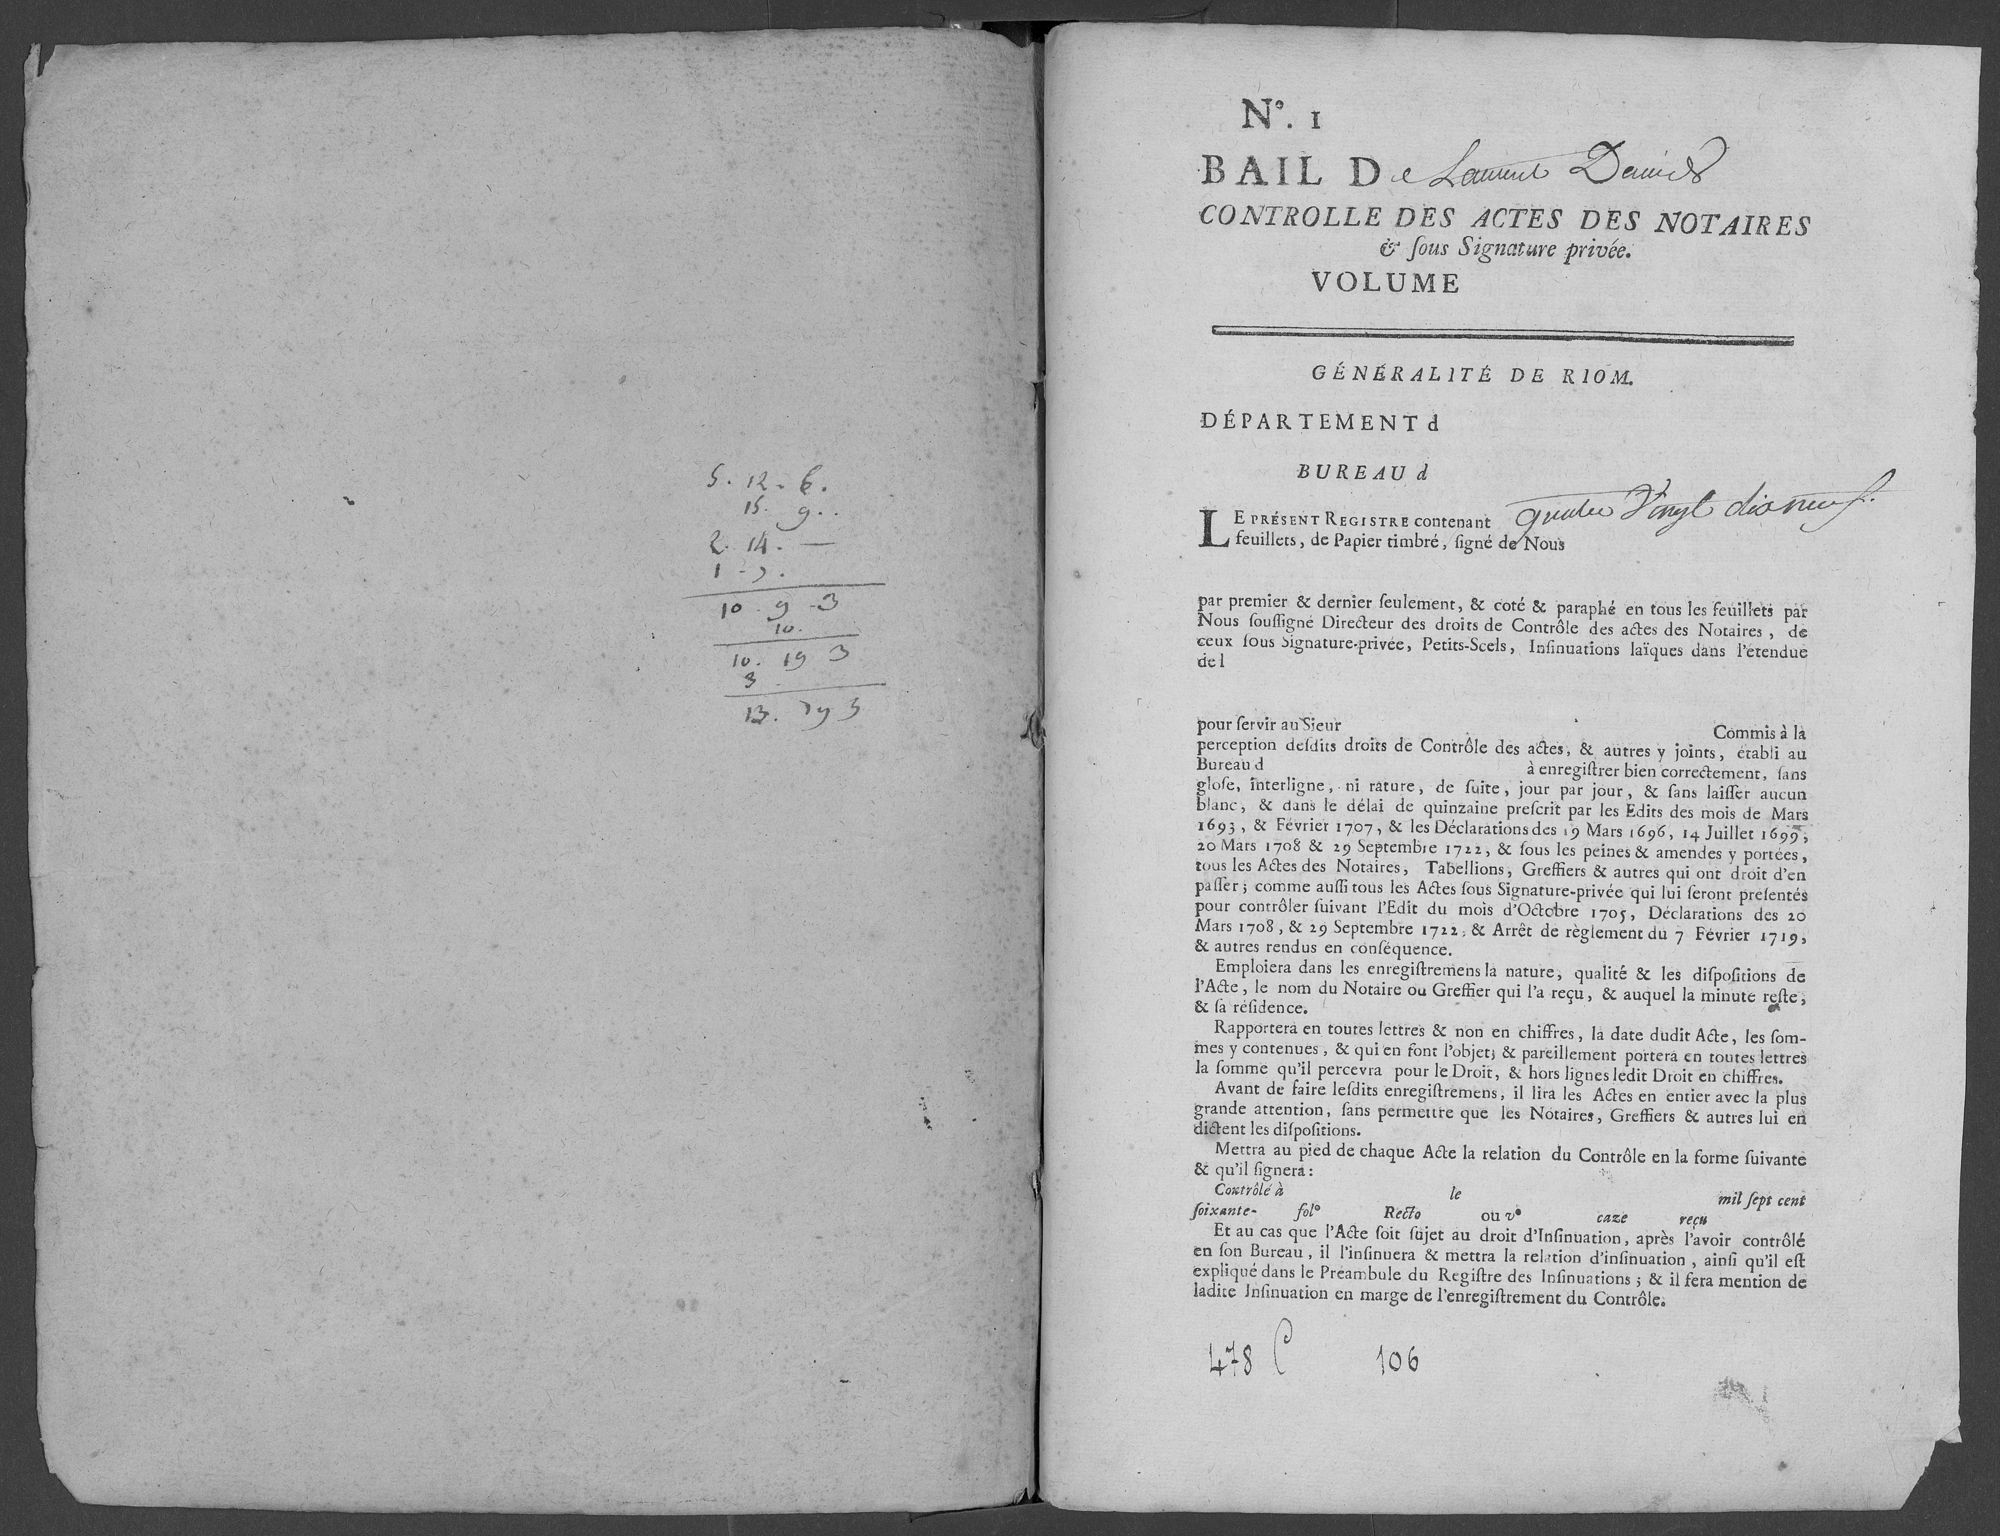 5. 12. 6.
15. 9..
2. 14. —
1 - 7.
10 . 9 - 3
10.
10. 19 3
3
13. 19 3
N°. 1
BAIL De Laurent David
CONTROLLE DES ACTES DES NOTAIRES
& ſous Signature privée.
VOLUME
GÉNÉRALITÉ DE RIOM.
DÉPARTEMENT d
BUREAU d
LE PRÉSENT REGISTRE contenant quatre Vingt dixneuf.
feuillets, de Papier timbré, ſigné de Nous
par premier & dernier ſeulement, & coté & paraphé en tous les feuillets par
Nous ſouſſigné Directeur des droits de Contrôle des actes des Notaires, de
ceux ſous Signature-privée, Petits-Scels, Inſinuations laïques dans l'étendue
de l
pour ſervir au Sieur Commis à la
perception deſdits droits de Contrôle des actes, & autres y joints, établi au
Bureau d à enregiſtrer bien correctement, ſans
gloſe, interligne, ni rature, de ſuite, jour par jour, & ſans laiſſer aucun
blanc, & dans le délai de quinzaine preſcrit par les Edits des mois de Mars
1693, & Février 1707, & les Déclarations des 19 Mars 1696, 14 Juillet 1699,
20 Mars 1708 & 29 Septembre 1722, & ſous les peines & amendes y portées,
tous les Actes des Notaires, Tabellions, Greffiers & autres qui ont droit d'en
paſſer; comme auſſi tous les Actes ſous Signature-privée qui lui ſeront preſentés
pour contrôler ſuivant l'Edit du mois d'Octobre 1705, Déclarations des 20
Mars 1708, & 29 Septembre 1722, & Arrêt de règlement du 7 Février 1719,
& autres rendus en conſéquence.
Emploiera dans les enregiſtremens la nature, qualité & les diſpoſitions de
l'Acte, le nom du Notaire ou Greffier qui l'a reçu, & auquel la minute reſte,
& ſa réſidence.
Rapportera en toutes lettres & non en chiffres, la date dudit Acte, les ſom-
mes y contenues, & qui en font l'objet; & pareillement portera en toutes lettres
la ſomme qu'il percevra pour le Droit, & hors lignes ledit Droit en chiffres.
Avant de faire leſdits enregiſtremens, il lira les Actes en entier avec la plus
grande attention, ſans permettre que les Notaires, Greffiers & autres lui en
dictent les diſpoſitions.
Mettra au pied de chaque Acte la relation du Contrôle en la forme ſuivante
& qu'il ſignera:
Contrôlé à le mil ſept cent
ſoixante- fol° Recto ou v° caze reçu
Et au cas que l'Acte ſoit ſujet au droit d'Inſinuation, après l'avoir contrôlé
en ſon Bureau, il l'inſinuera & mettra la relation d'inſinuation, ainſi qu'il eſt
expliqué dans le Préambule du Regiſtre des Inſinuations; & il fera mention de
ladite Inſinuation en marge de l'enregiſtrement du Contrôle.
478 C 106